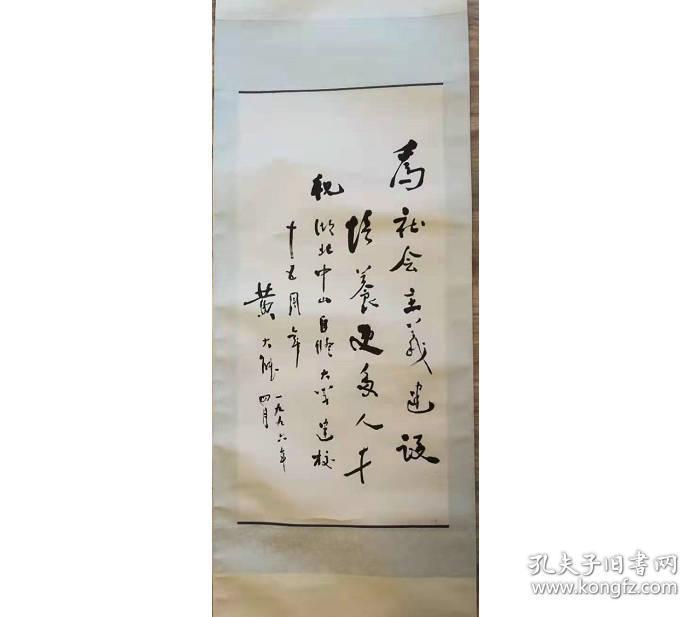 为社会主义建设
培养更多人才
祝湖北中山自修大学建校
十五周年
黄大能 一九九六年
四月
孔夫子旧书网
www.kongfz.com